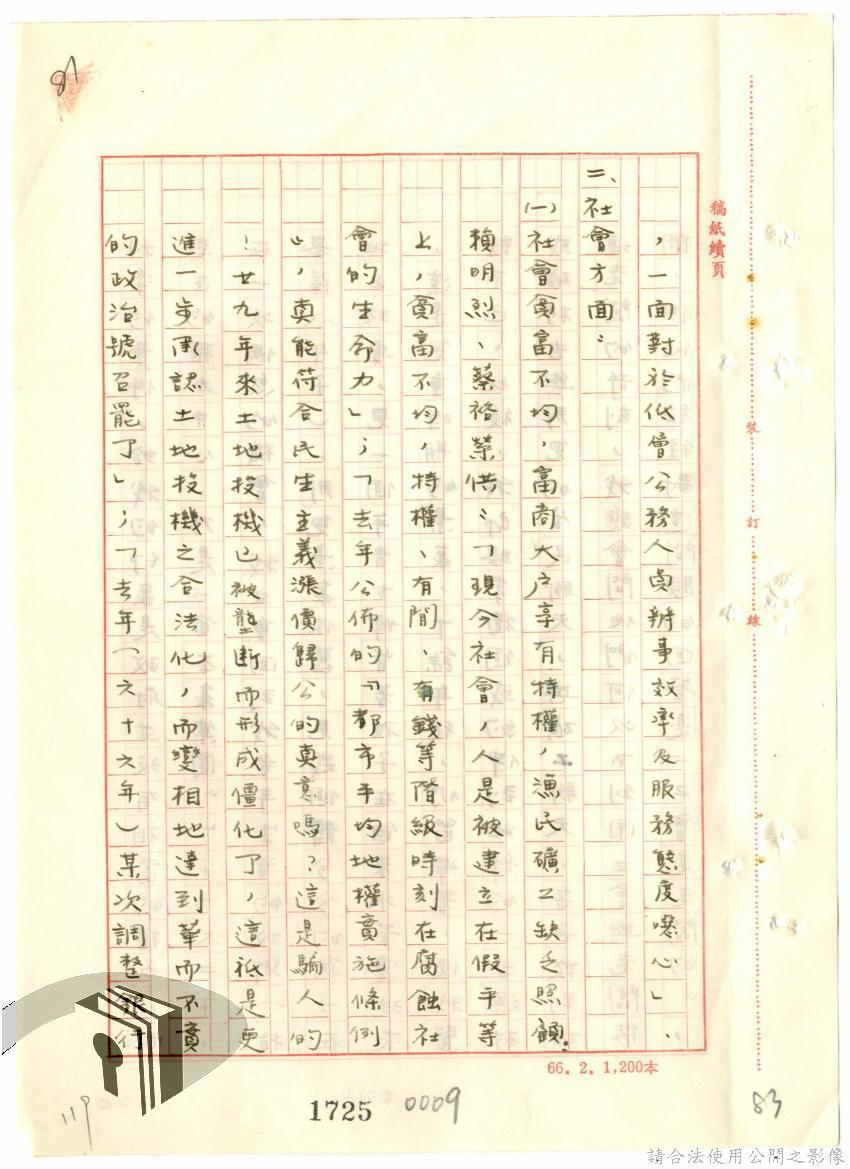 81
稿紙續頁
裝訂線
，一面對於低層公務人員辦事效率及服務態度噁心」、
二、社會方面：
(一)社會貧富不均，富商大戶享有特權，漁民礦工缺乏照顧。
賴明烈、蔡裕榮供：「現今社會，人是被建立在假平等
上，貧富不均，特權、有閒、有錢等階級時刻在腐蝕社
會的生命力」；「去年公佈的『都市平均地權實施條例
』，真能符合民生主義漲價歸公的真意嗎？這是騙人的
！廿九年來土地投機已被壟斷而形成僵化了，這祇是更
進一步承認土地投機之合法化，而變相地達到華而不實
的政治號召罷了」；「去年（六十六年）某次調整銀行
66. 2. 1,200本
119
1725
0009
83
請合法使用公開之影像